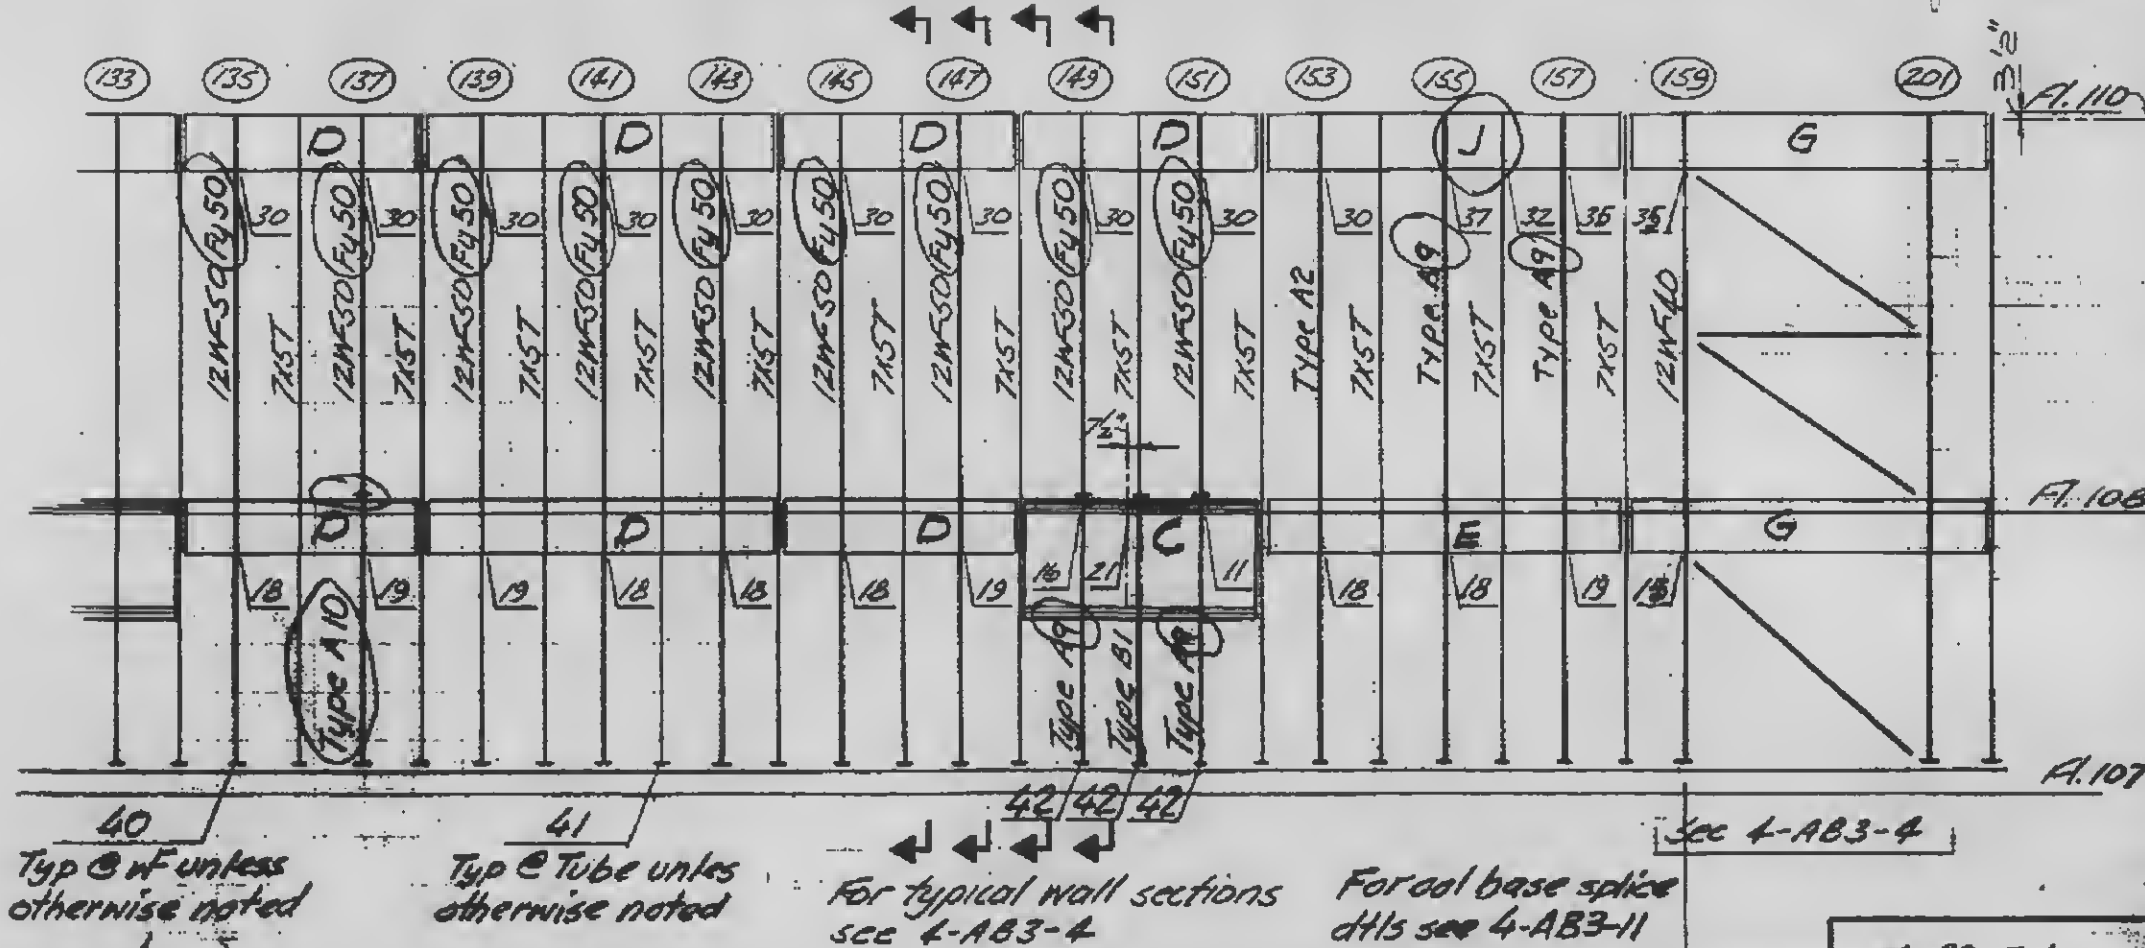 133 135 137 139 141 143 145 147 149 151 153 155 157 159 201
3½"
Fl. 110
D D D D J G
30 30 30 30 30 30 30 30 30 30 37 32 35 35
12WF50 Fy50
7X5T
12WF50 Fy50
7X5T
12WF50 Fy50
7X5T
12WF50 Fy50
7X5T
12WF50 Fy50
7X5T
12WF50 Fy50
7X5T
12WF50 Fy50
7X5T
12WF50 Fy50
7X5T
12WF50 Fy50
7X5T
Type A2
7X5T
Type A9
7X5T
Type A9
7X5T
12WF40
7½"
Fl. 108
D D D C E G
18 19 19 18 18 18 19 16 21 11 18 18 19
Type A10
Type A9
Type B1
Type
Fl. 107
40
Typ @ WF unless
otherwise noted
41
Typ @ Tube unles
otherwise noted
42 42 42
For typical wall sections
see 4-AB3-4
For col base splice
dtls see 4-AB3-11
See 4-AB3-4